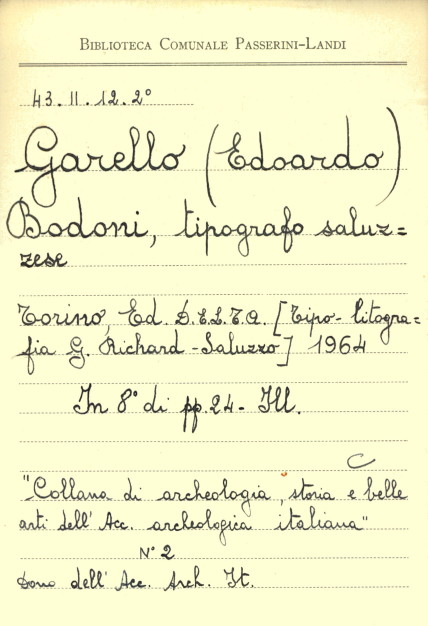 BIBLIOTECA COMUNALE PASSERINI-LANDI
43.II.12.2°
Garello (Edoardo)
Bodoni, tipografo saluz=
zese
Torino, Ed. D.E.L.T.A. [Tipo-litogra=
fia G. Richard-Saluzzo] 1964
In 8° di pp. 24- Ill.
C
"Collana di archeologia, storia e belle
arti dell' Acc. archeologica italiana"
N° 2
Dono dell' Acc. Arch. It.